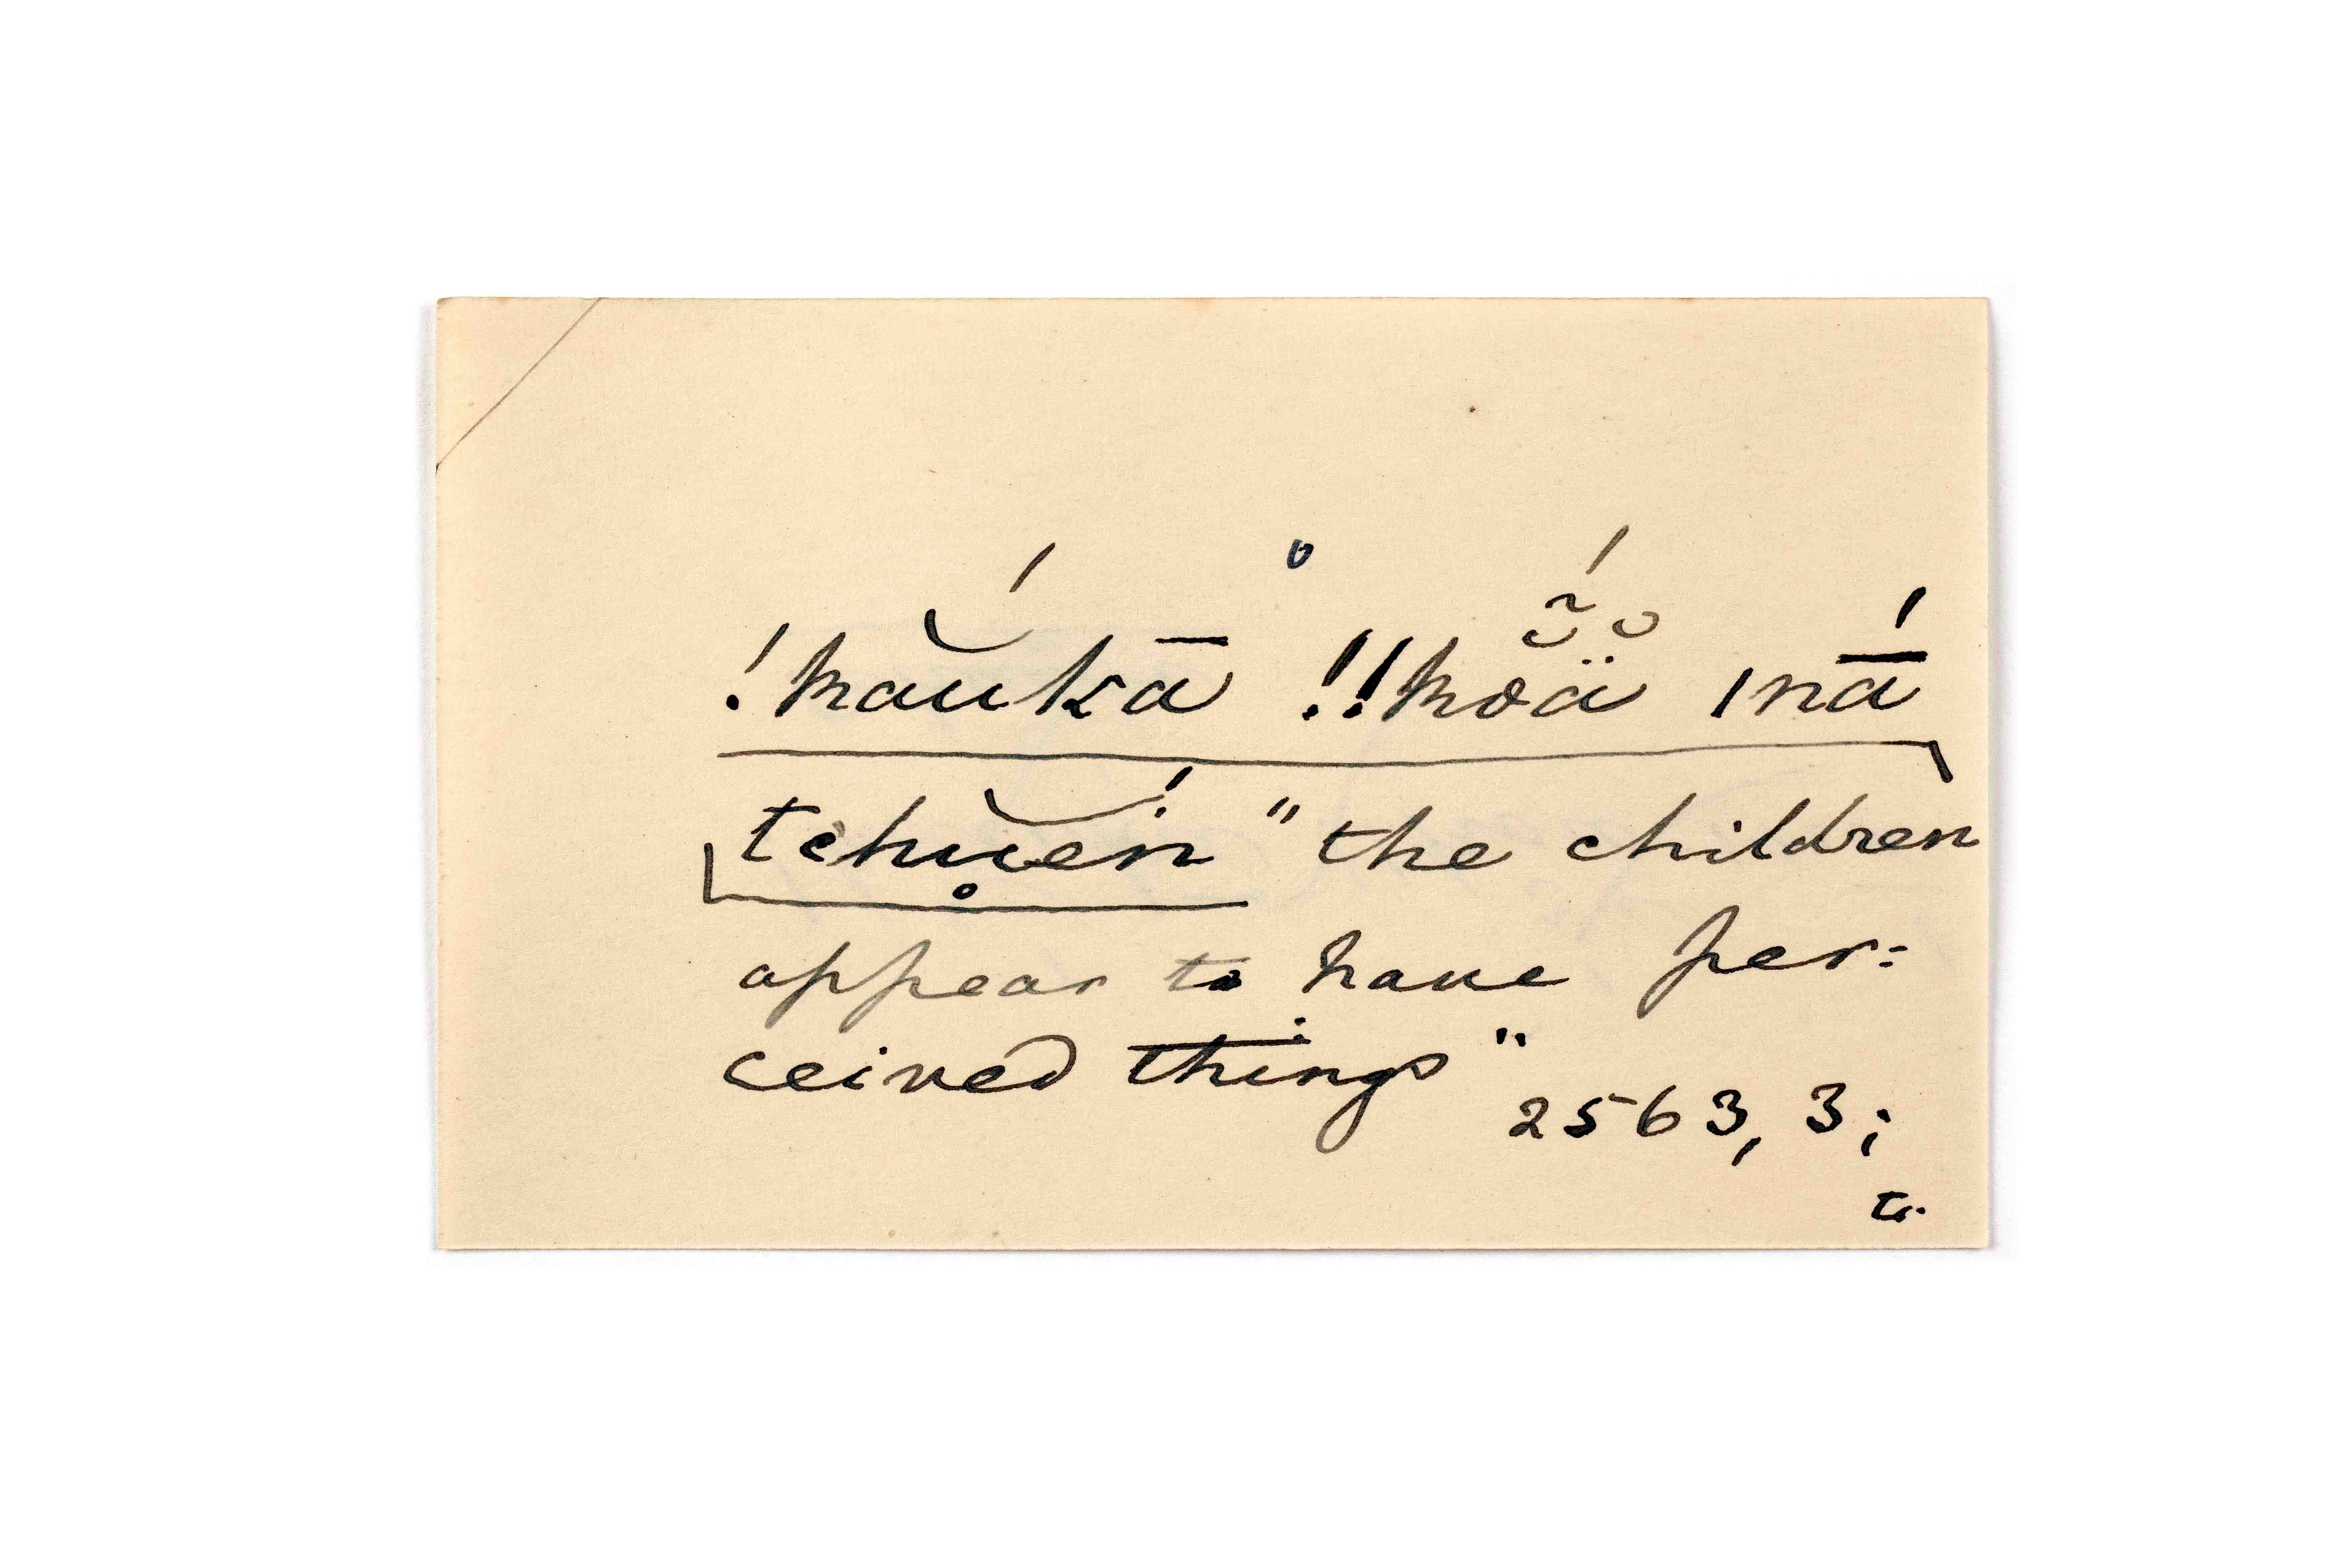 !kăúkā !!kõ̆ä̆́ ınā́
tchŭ̥éń "the children
appear to have per=
ceived things"
2563, 3;
tr.